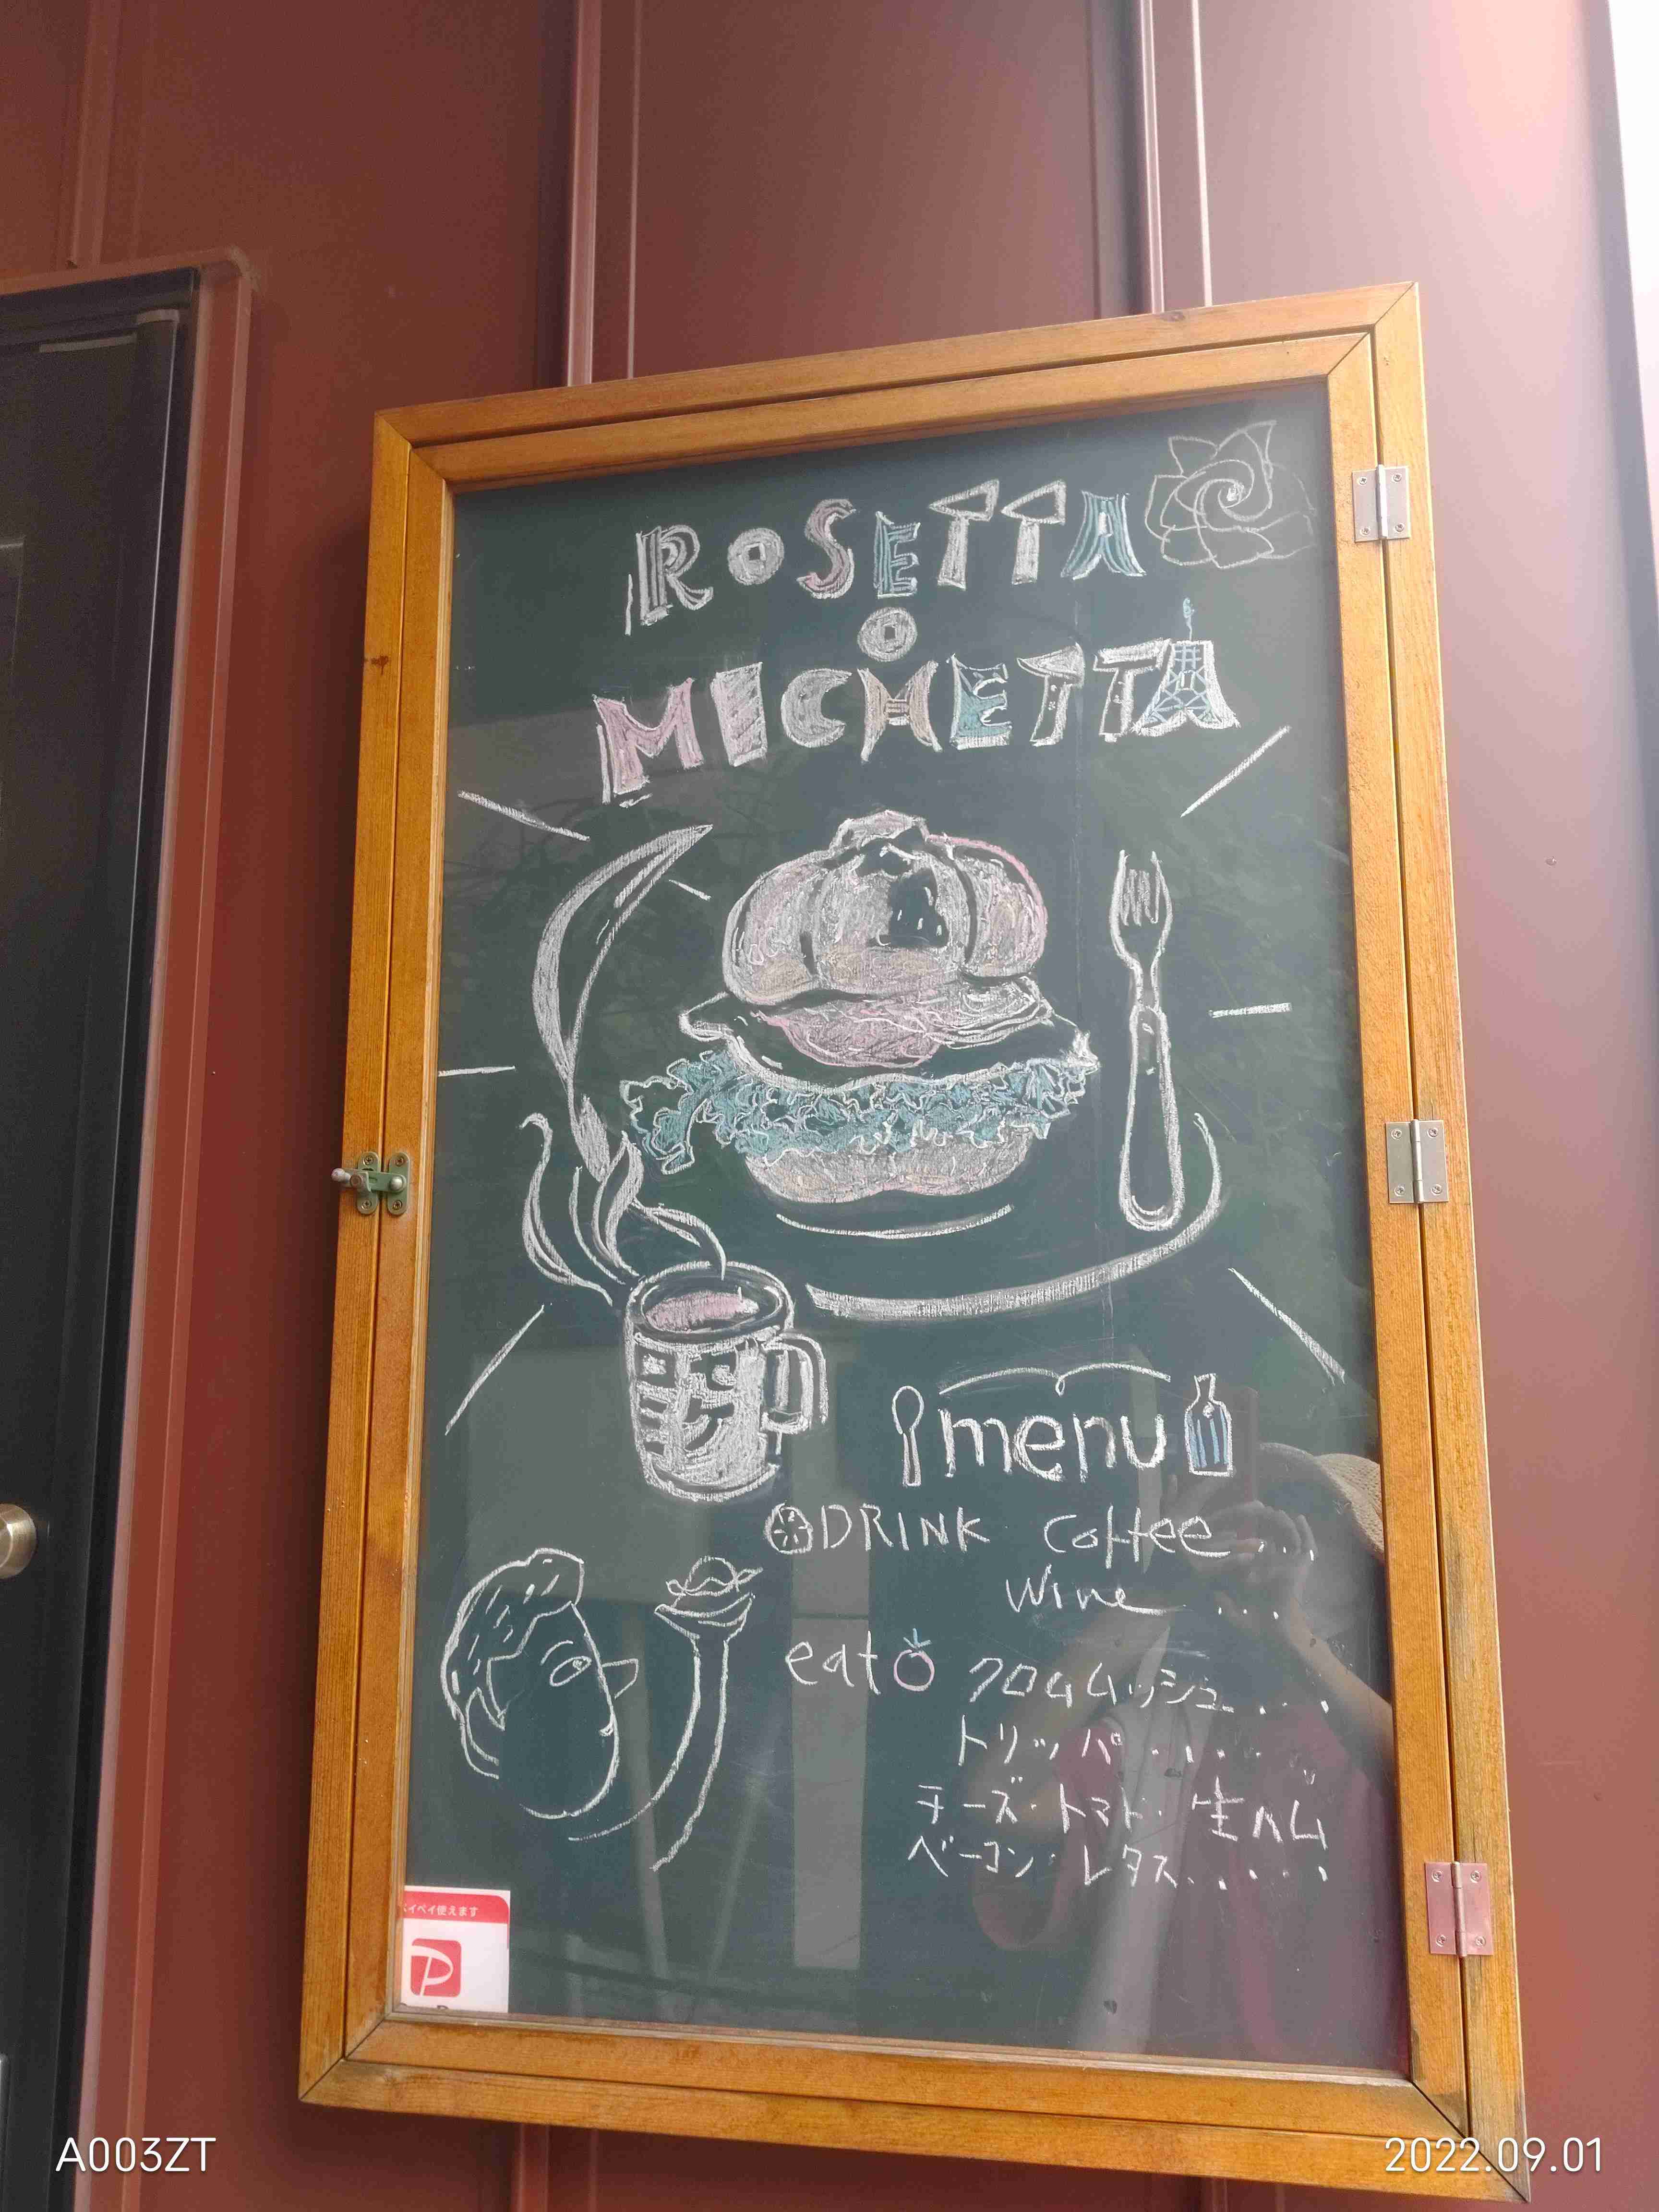 ROSETTA
O
MICHETTA
menu
DRINK Coffee...
Wine....
eat クロムムッシュ....
トリッパ......
チーズ・トマト・生ハム
ベーコン・レタス.....
ペイペイ使えます
P
A003ZT
2022.09.01